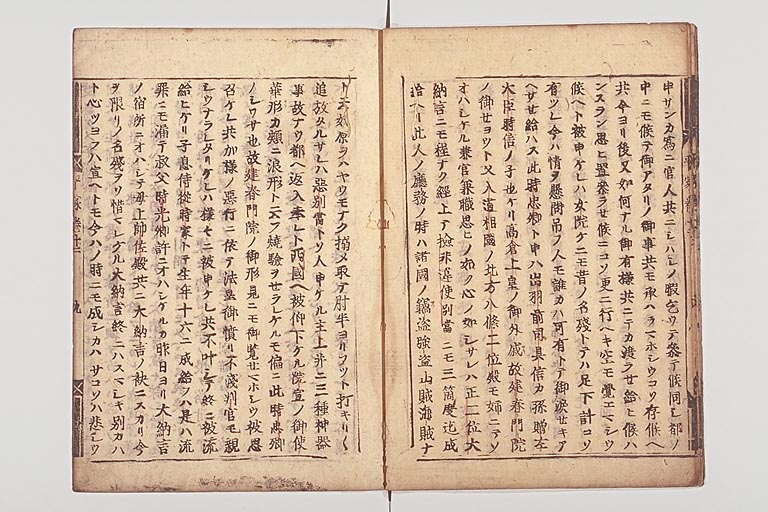 申サンカ為ニ官人共ニシハシノ暇乞ウテ参テ候同シ都ノ
中ニモ候テ御アタリノ御事共モ承ハラマホシウコソ存候ヘ
共今ヨリ後又如何ナル御有様共ニテカ渡ラせ給ヒ候ハ
ンスラント思ヒ置参ラせ候ニコソ更ニ行ヘキ空モ覚エマシウ
候ヘト被申ケレハ女院ケニモ昔ノ名残トテハ足下計コソ
有ツレ今ハ情ヲ懸問吊フ人モ誰カハ可有トテ御涙せキア
ヘサせ給ハス此時忠卿ト申ハ出羽前司具信カ孫贈左
大臣時信ノ子也ケリ高倉上皇ノ御外戚故建春門院
ノ御せウト又入道相國ノ北方八條二位殿モ姉ニテソ
オハシケル兼官兼職思ヒノ如ク心ノ如シサレハ正二位大
納言ニモ程ナク経上テ検非違使別當ニモ三箇度迄成
給ヘリ此人ノ廳務ノ時ハ諸國ノ竊盗強盗山賊海賊ナ
ト云奴原ヲハヤウモナク搦メ取テ肘半ヨリフツト打キリ〱
追放タルサレハ悪別當トソ人申ケル主上并ニ三種神器
事故ナウ都ヘ返入奉レト西國ヘ被仰下ケル院宣ノ御使
華形カ頬ニ浪形ト云フ焼驗ヲサせラレケルモ偏ニ此時忠卿
ノシワサ也故建春門院ノ御形見ニモ御覧せマホシウ被思
召ケレ共加様ノ悪行ニ依テ法皇御憤リ不浅判官モ親
シウナラレタリケレハ様々ニ被申ケレ共不叶シテ終ニ被流
給ヒケリ子息侍従時家トテ生年十六ニ成給フハ是ハ流
罪ニモ漏テ叔父時光卿許ニオハシケルカ昨日ヨリ大納言
ノ宿所ニオハシテ母上帥佐殿共ニ大納言ノ袂ニスカリ今
ヲ限リノ名残ヲソ惜マレケル大納言終ニハスマシキ別カハ
ト心ツヨウハ宣ヘトモ今ハノ時ニモ成シカハサコソハ悲シウ
九